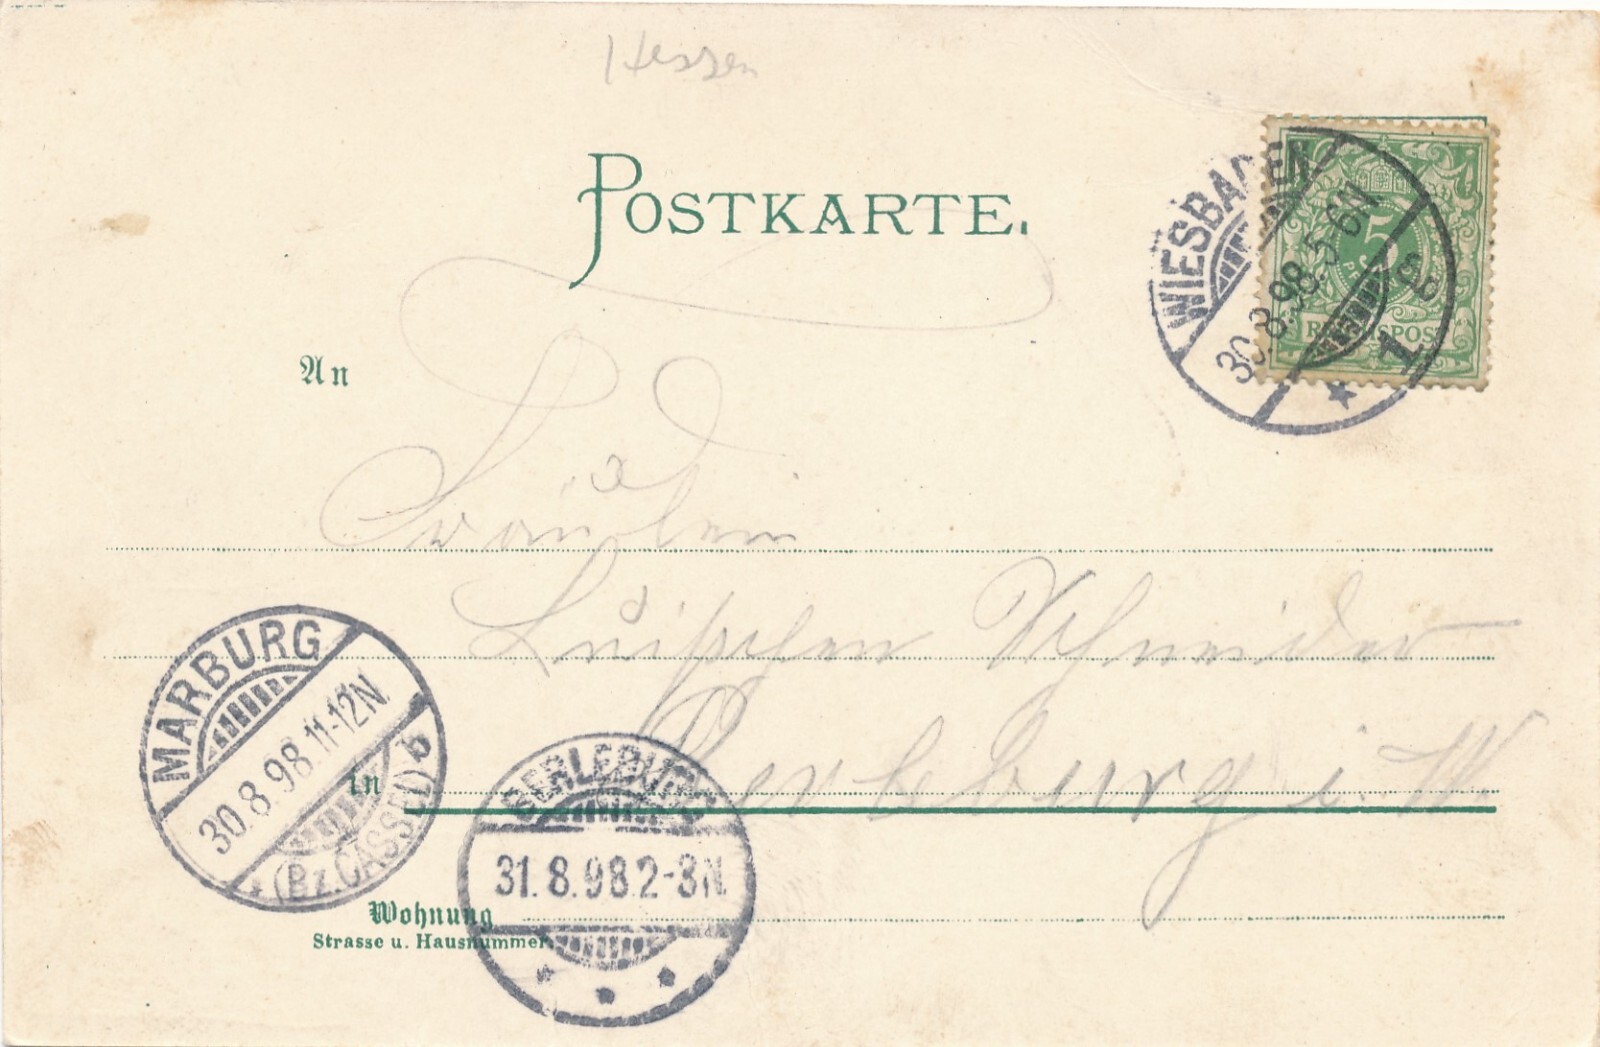 Hessen
POSTKARTE.
WIESBADEN
30.8.98.5-6N
* 1
5
PF
REICHSPOST
An
Fräulein
Luischen Schneider
in Berleburg i. W.
MARBURG
30.8.98.11-12N.
* (Bz.CASSEL) b
BERLEBURG
31.8.98.2-3N.
* * *
Wohnung
Strasse u. Hausnummer.